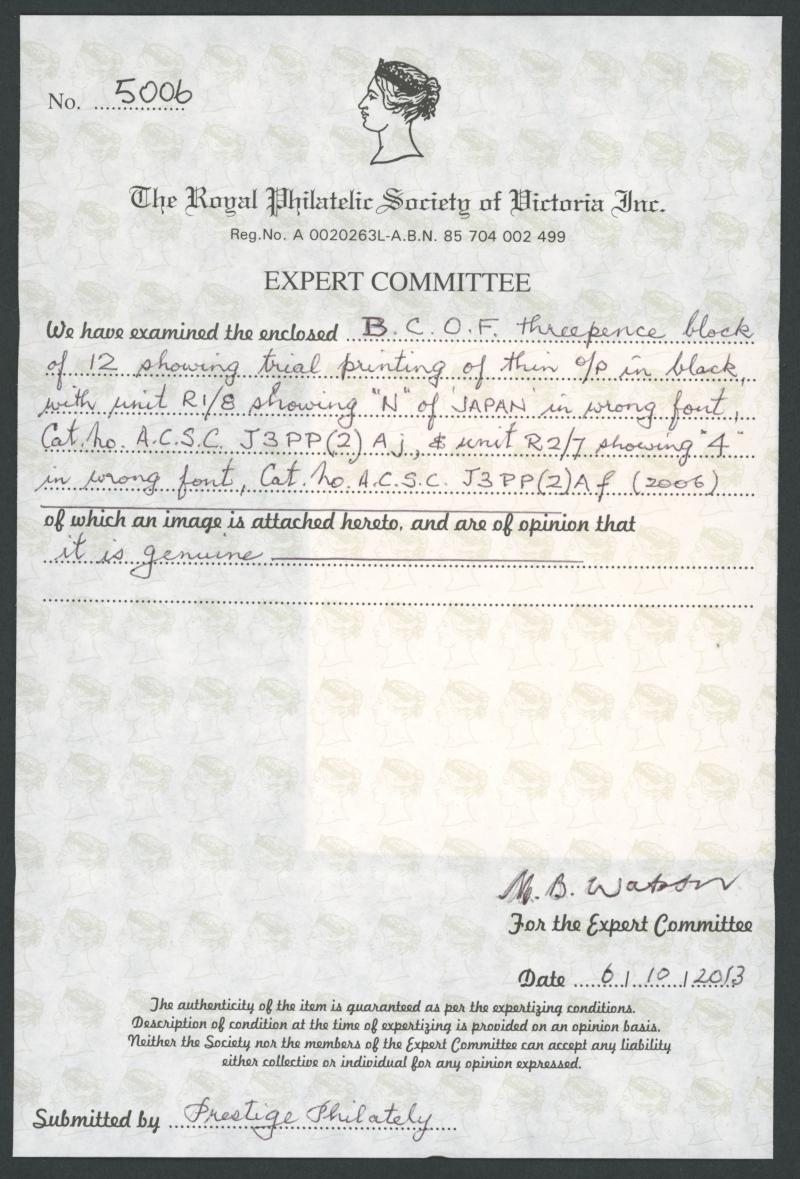 No. 5006
The Royal Philatelic Society of Victoria Inc.
Reg.No. A 0020263L-A.B.N. 85 704 002 499
EXPERT COMMITTEE
We have examined the enclosed B.C.O.F. threepence block
of 12 showing trial printing of thin o/p in black,
with unit R1/8 showing "N" of 'JAPAN' in wrong font,
Cat. no. A.C.S.C. J3PP(2)Aj, & unit R2/7 showing "4"
in wrong font, Cat. no. A.C.S.C. J3PP(2)Af (2006)
of which an image is attached hereto, and are of opinion that
it is genuine
M. B. Watson
For the Expert Committee
Date 6/10/2013
The authenticity of the item is guaranteed as per the expertizing conditions.
Description of condition at the time of expertizing is provided on an opinion basis.
Neither the Society nor the members of the Expert Committee can accept any liability
either collective or individual for any opinion expressed.
Submitted by Prestige Philately